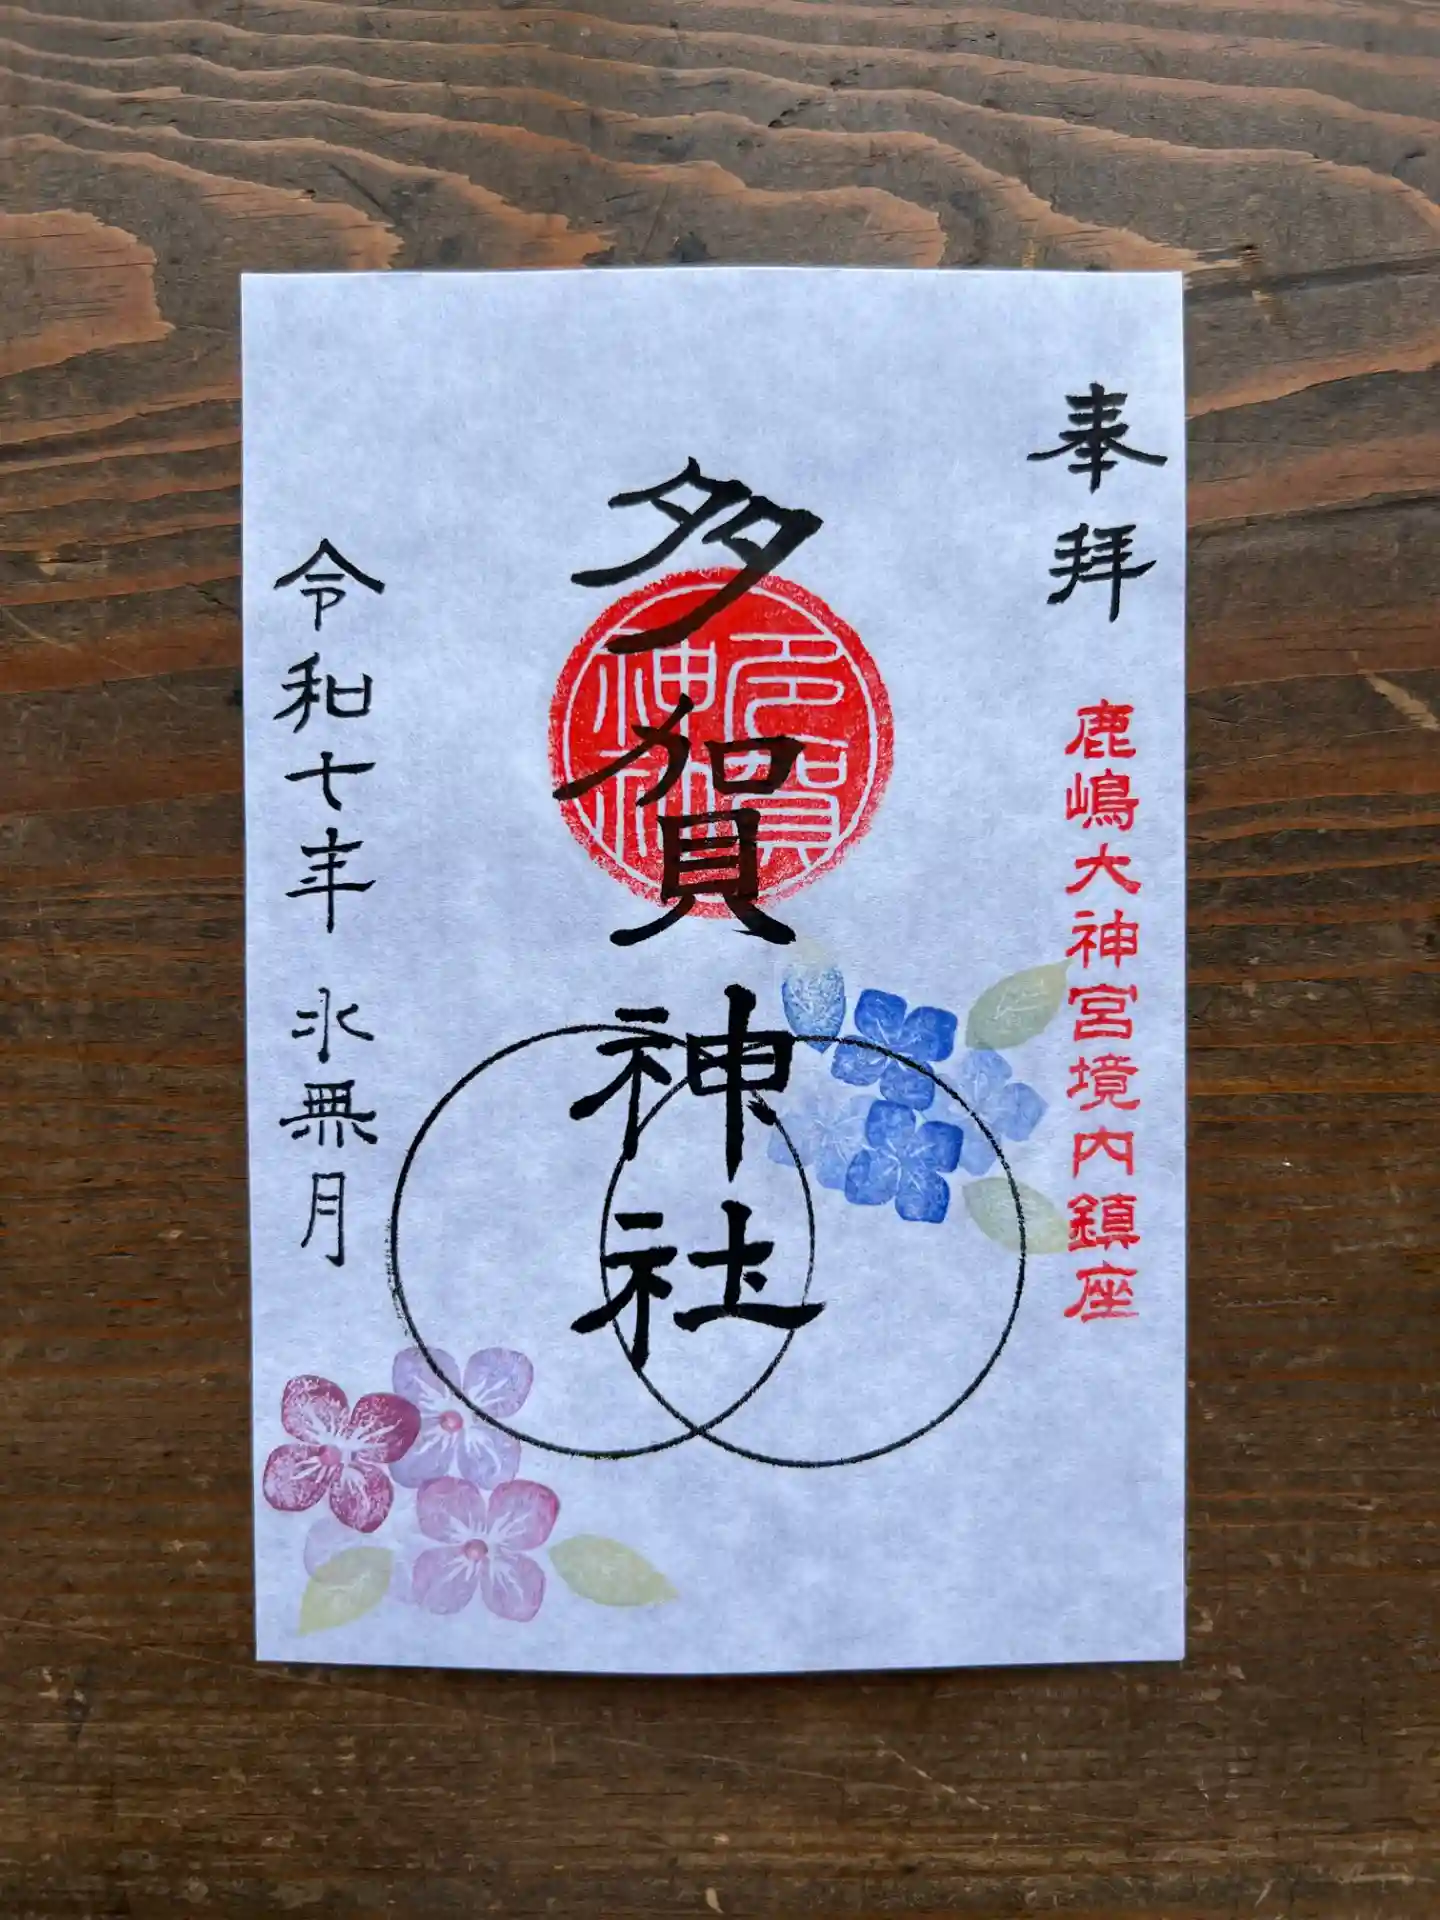 奉拝
鹿嶋大神宮境内鎮座
多賀神社
多賀
神社
令和七年 水無月